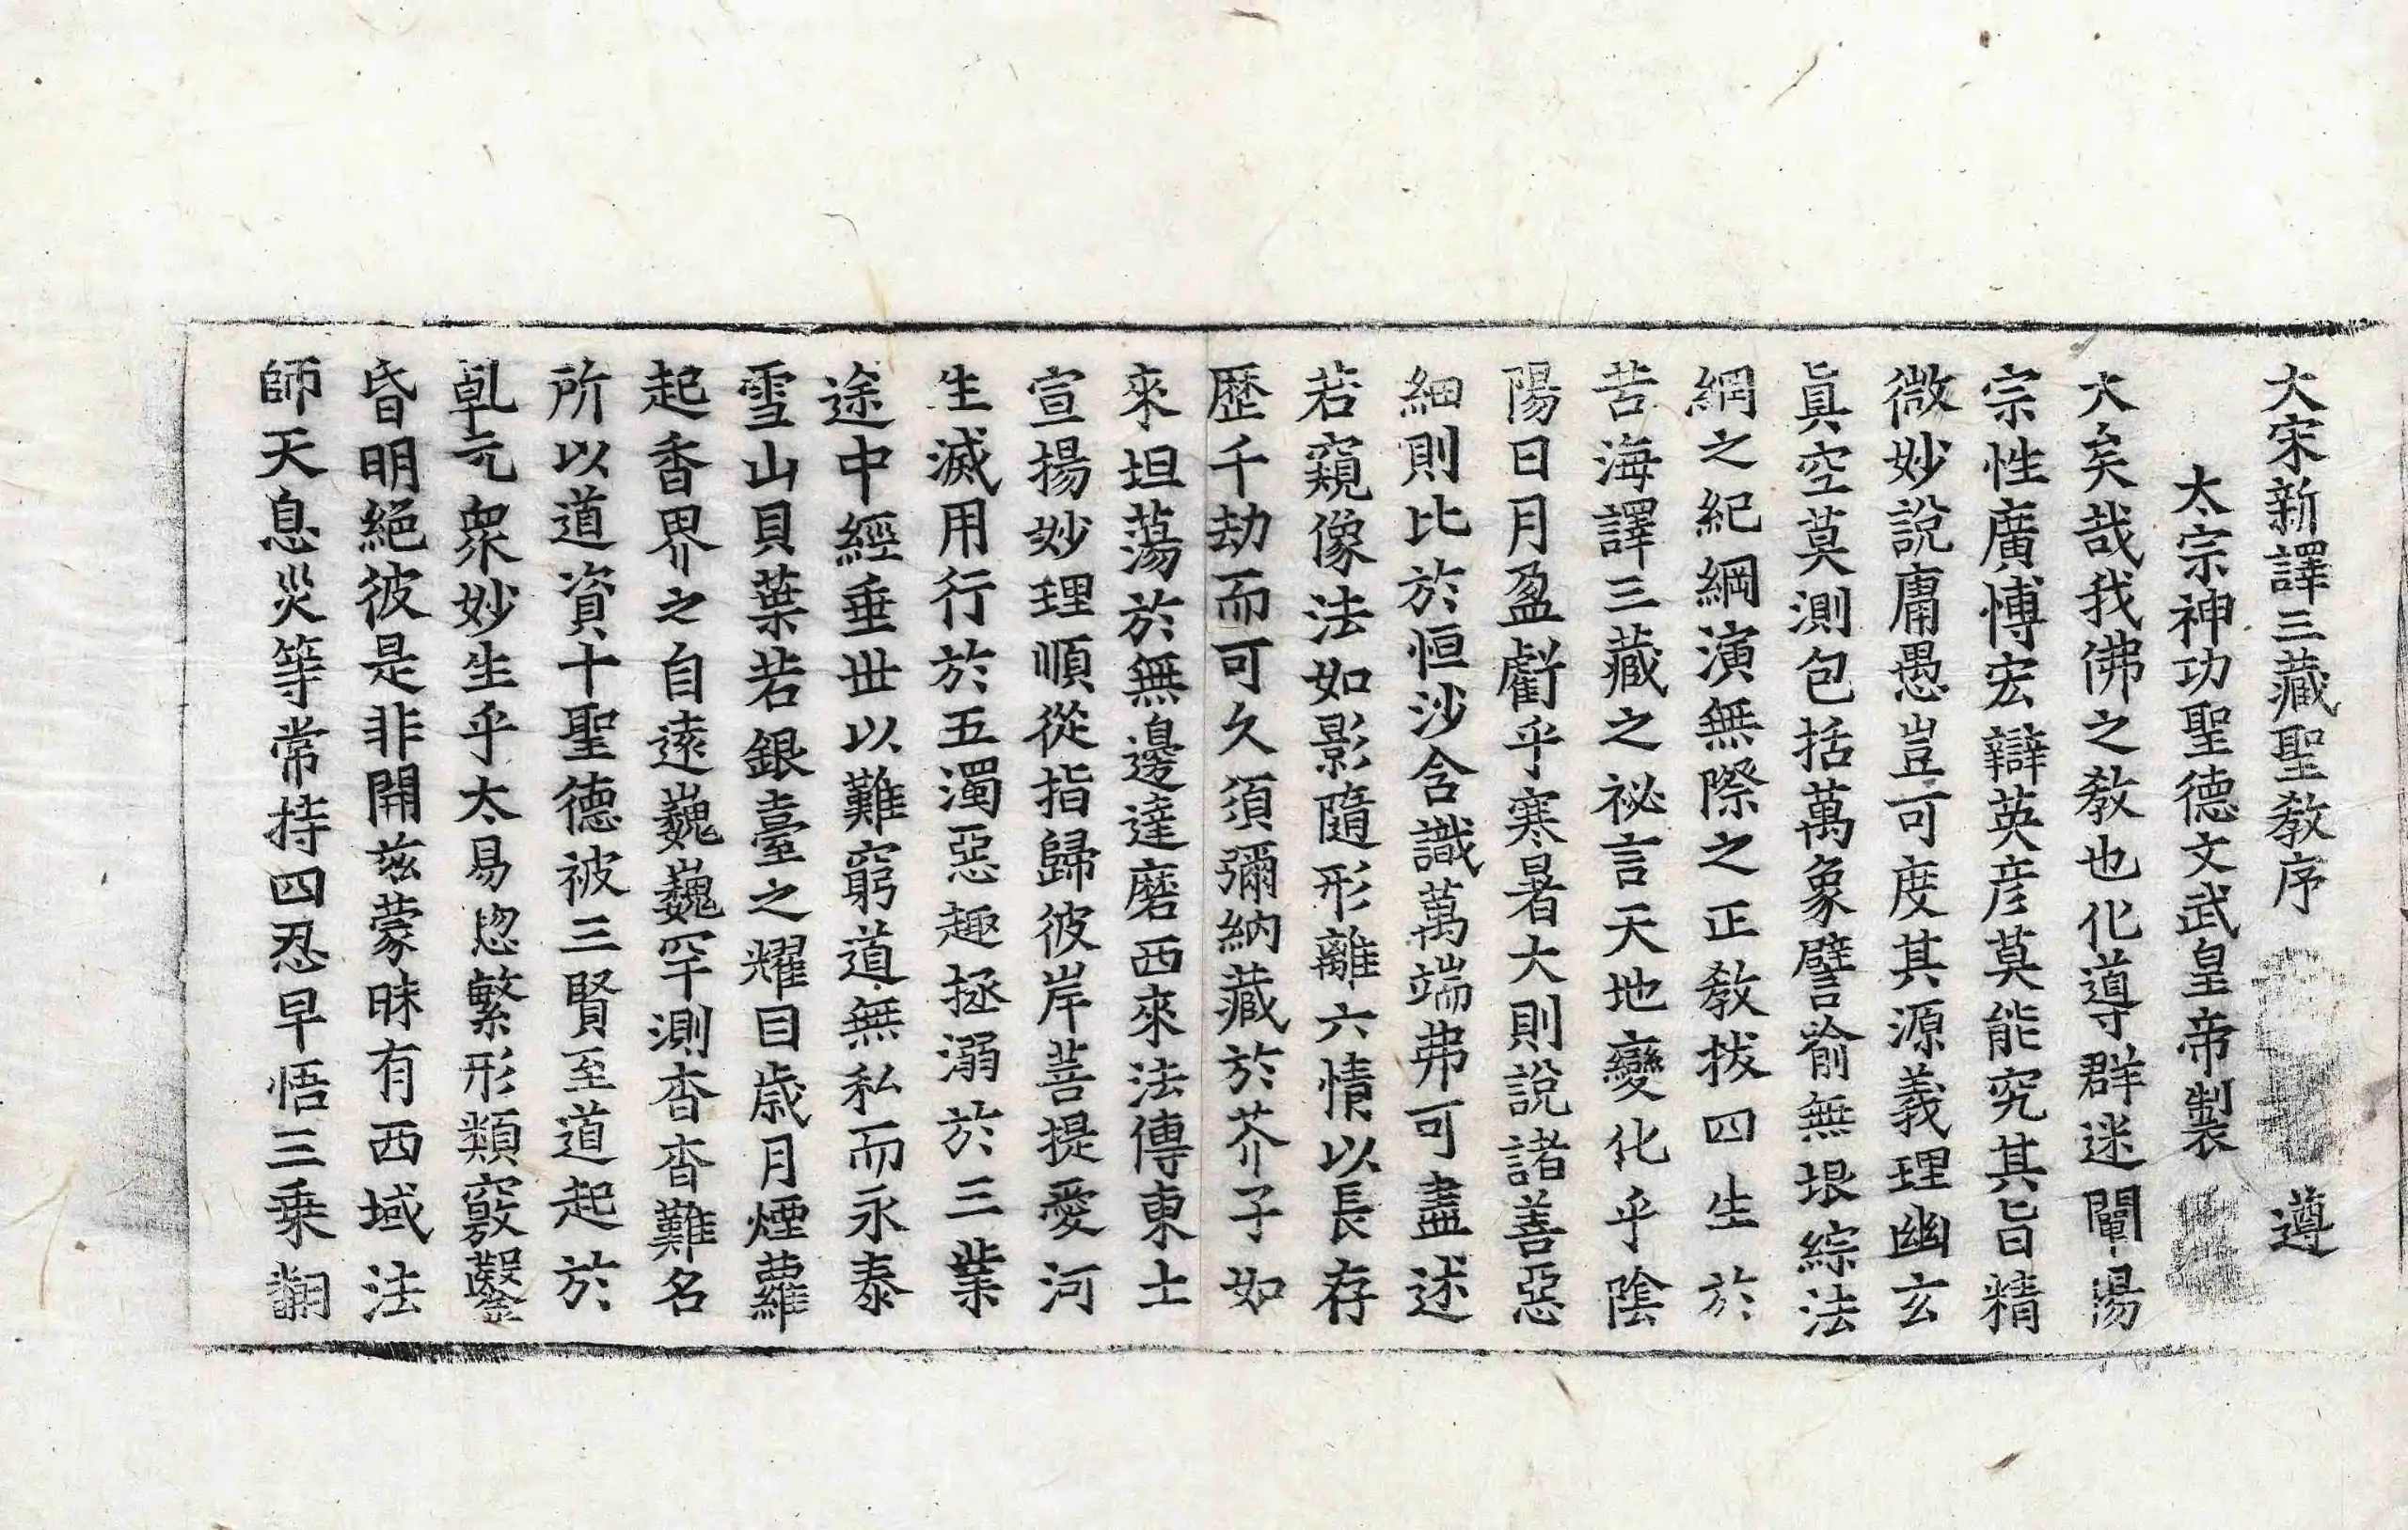 大宋新譯三藏聖教序 遵
太宗神功聖德文武皇帝製
大矣哉我佛之教也化導群迷闡揚
宗性廣愽宏辯英彦莫能究其旨精
微妙說庸愚豈可度其源義理幽玄
眞空莫測包括萬象譬喻無垠綜法
網之紀綱演無際之正教拔四生於
苦海譯三藏之祕言天地變化乎陰
陽日月盈虧乎寒暑大則說諸善惡
細則比於恒沙含識萬端弗可盡述
若窺像法如影隨形離六情以長存
歷千劫而可久須彌納藏於芥子如
來坦蕩於無邊達磨西來法傳東土
宣揚妙理順從指歸彼岸菩提愛河
生滅用行於五濁惡趣拯溺於三業
途中經垂世以難窮道無私而永泰
雪山貝葉若銀臺之耀目歲月煙蘿
起香界之自遠巍巍罕測杳杳難名
所以道資十聖德被三賢至道起於
乹元衆妙生乎太易惣繁形類竅鑿
昏明絕彼是非開茲蒙昧有西域法
師天息災等常持四忍早悟三乘翻